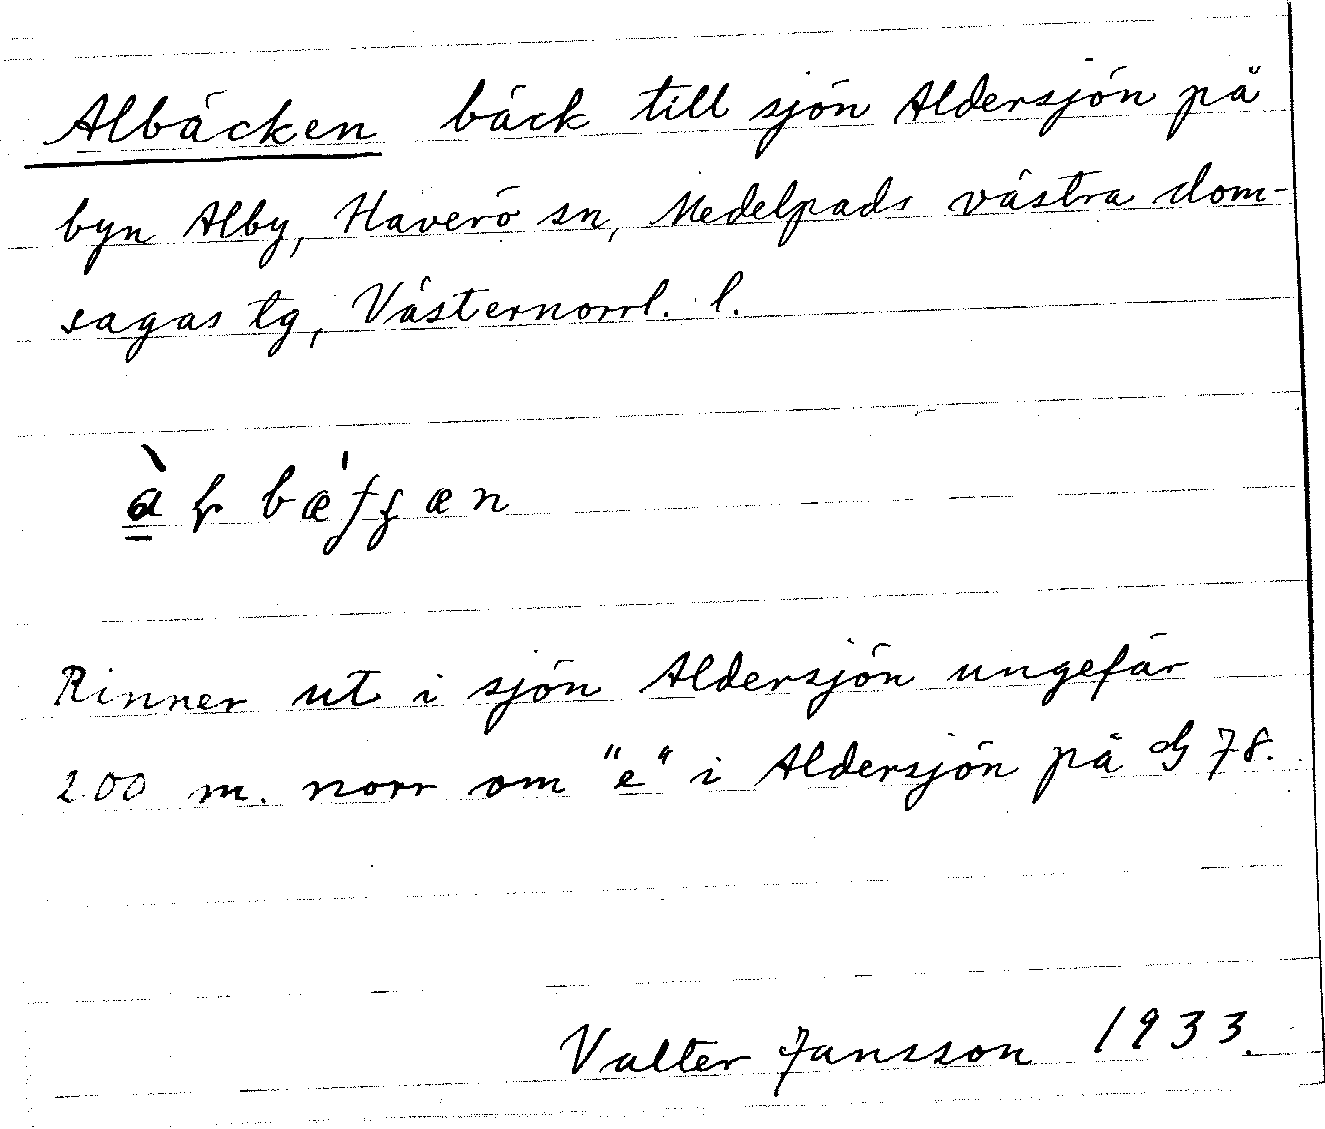 Albäcken bäck till sjön Aldersjön på
byn Alby, Haverö sn, Medelpads västra dom-
sagas tg, Västernorrl. l.
Rinner ut i sjön Aldersjön ungefär
200 m. norr om "e" i Aldersjön på G 78.
Valter Jansson 1933.